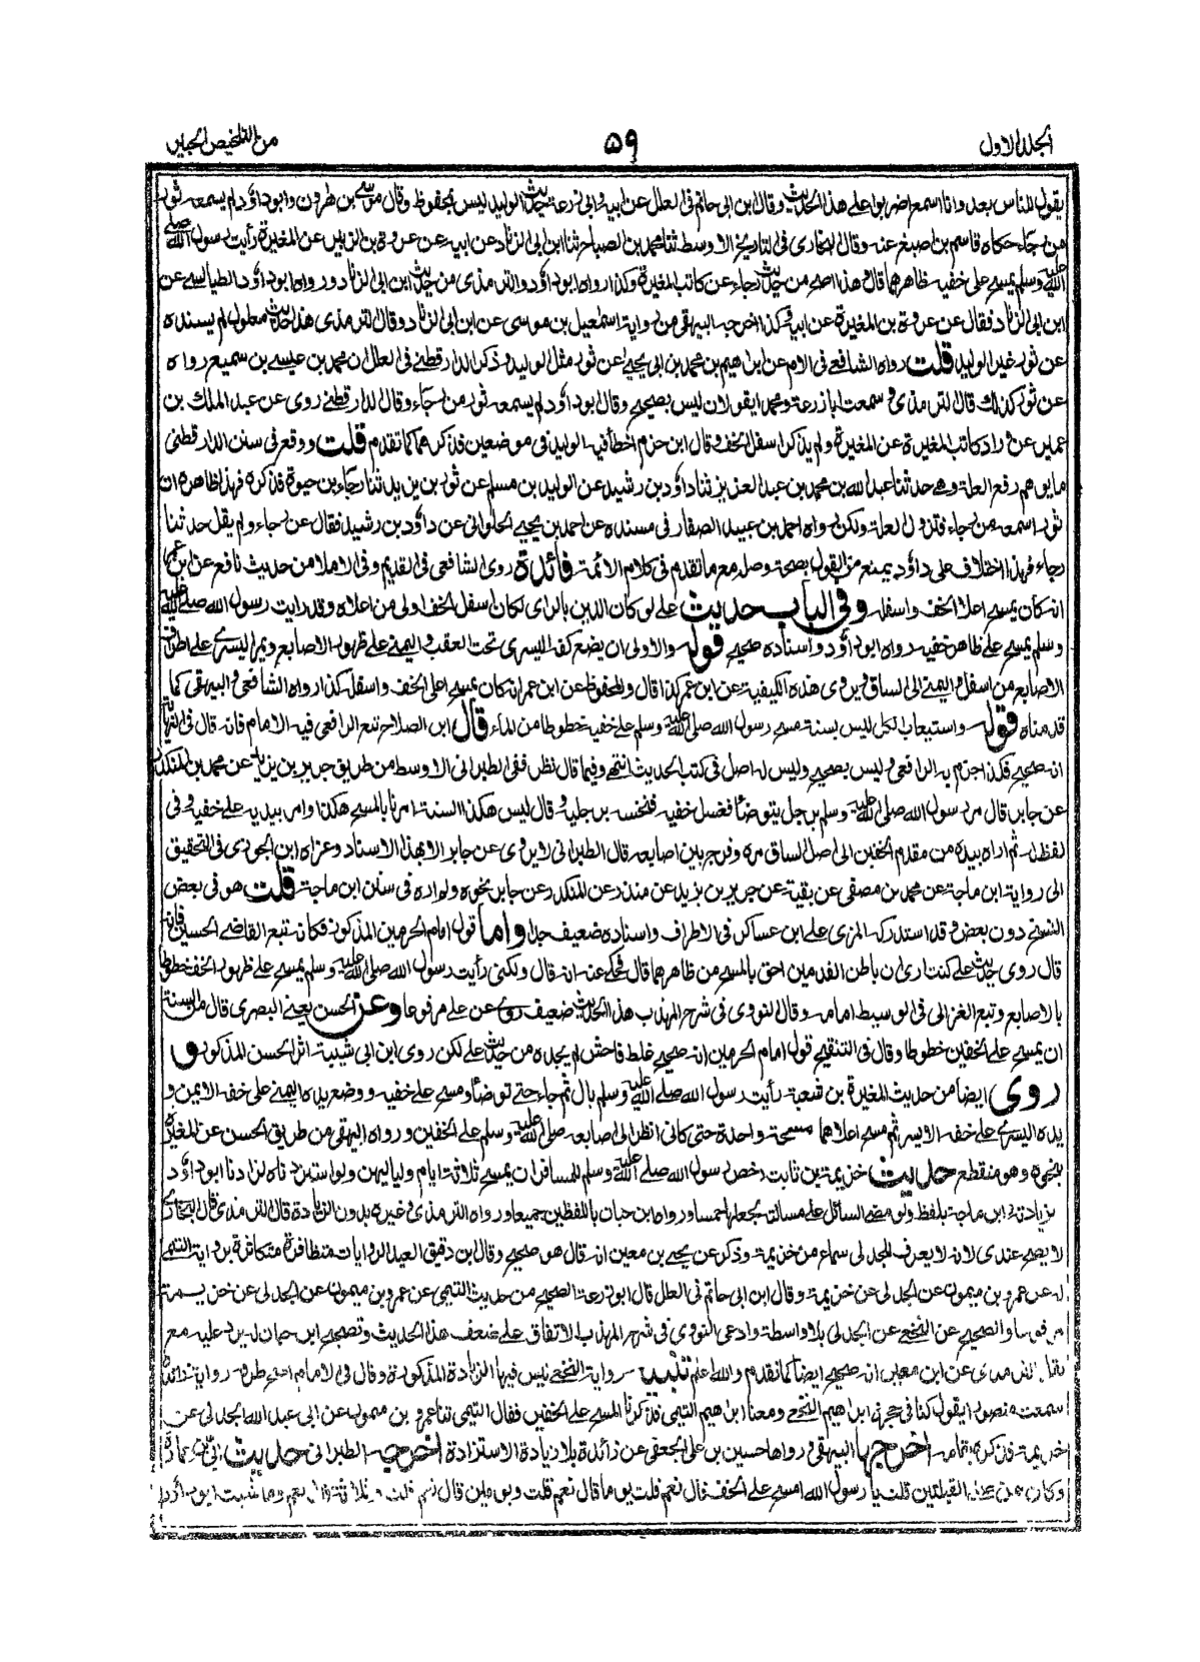 الجلد الاول
٥٩
من التلخيص الحبير
يقول للناس بعد وانا اسمع اضربوا على هذا الحديث وقال ابن ابى حاتم فى العلل عن ابيه وابى زرعة حديث الوليد ليس بمحفوظ وقال موسى بن هارون وابو داؤد لم يسمعه ثور
من رجاء حكاه قاسم بن اصبغ عنه وقال البخارى فى التاريخ الاوسط ثنا محمد بن الصباح ثنا ابن ابى الزناد عن ابيه عن عروة بن الزبير عن المغيرة رأيت رسول الله صلى
الله عليه وسلم يمسح على خفيه ظاهرهما قال وهذا اصح من حديث رجاء عن كاتب المغيرة وكذا رواه ابو داؤد والترمذى من حديث ابن ابى الزناد ورواه ابو داؤد الطيالسى عن
ابن ابى الزناد فقال عن عروة بن المغيرة عن ابيه وكذا اخرجه البيهقى من رواية اسمعيل بن موسى عن ابن ابى الزناد وقال الترمذى هذا حديث معلول لم يسنده
عن ثور غير الوليد قلت رواه الشافعى فى الام عن ابراهيم بن محمد بن ابى يحيى عن ثور مثل الوليد وذكر الدارقطنى فى العلل ان محمد بن عيسى بن سميع رواه
عن ثور كذلك قال الترمذى وسمعت ابا زرعة ومحمدا يقولان ليس بصحيح وقال ابو داؤد لم يسمعه ثور من رجاء وقال الدارقطنى روى عن عبد الملك بن
عمير عن وراد كاتب المغيرة عن المغيرة ولم يذكر اسفل الخف وقال ابن حزم اخطأ فيه الوليد فى موضعين فذكرهما كما تقدم قلت ووقع فى سنن الدارقطنى
ما يوهم رفع العلة وهى حدثنا عبد الله بن محمد بن عبد العزيز ثنا داؤد بن رشيد عن الوليد بن مسلم عن ثور بن يزيد ثنا رجاء بن حيوة فذكره فهذا ظاهره ان
ثورا سمعه من رجاء فتزول العلة ولكن رواه احمد بن عبيد الصفار فى مسنده عن احمد بن يحيى الحلوانى عن داؤد بن رشيد فقال عن رجاء ولم يقل حدثنا
رجاء فهذا اختلاف على داؤد يمنع من القول بصحة وصله مع ما تقدم فى كلام الائمة فائدة روى الشافعى فى القديم وفى الاملا من حديث نافع عن ابن عمر
انه كان يمسح اعلا الخف واسفله وفى الباب حديث على لو كان الدين بالراى لكان اسفل الخف اولى من اعلاه وقد رايت رسول الله صلى الله عليه
وسلم يمسح على ظاهر خفيه رواه ابو داؤد واسناده صحيح قوله والاولى ان يضع كفه اليسرى تحت العقب واليمنى على ظهور الاصابع ويمر اليسرى على اطراف
الاصابع من اسفل واليمنى الى الساق ويروى هذه الكيفية عن ابن عمر كذا قال والمحفوظ عن ابن عمر انه كان يمسح اعلى الخف واسفله كذا رواه الشافعى والبيهقى كما
قدمناه قوله واستيعاب الكل ليس بسنة مسح رسول الله صلى الله عليه وسلم على خفيه خطوطا من الماء قال ابن الصلاح تبع الرافعى فيه الامام فانه قال فى النهاية
انه صحيح فكذا جزم به الرافعى وليس بصحيح وليس له اصل فى كتب الحديث انتهى وفيما قال نظر ففى الطبرانى الاوسط من طريق جرير بن يزيد عن محمد بن المنكدر
عن جابر قال مر رسول الله صلى الله عليه وسلم برجل يتوضأ فغسل خفيه فنخسه برجليه وقال ليس هكذا السنة امرنا بالمسح هكذا وامر بيديه على خفيه وفى
لفظ له ثم اراه بيده من مقدم الخفين الى اصل الساق مرة وفرج بين اصابعه قال الطبرانى لا يروى عن جابر الا بهذا الاسناد وعزاه ابن الجوزى فى التحقيق
الى رواية ابن ماجة عن محمد بن مصفى عن بقية عن جرير بن يزيد عن منذر عن المنكدر عن جابر نحوه ولم اره فى سنن ابن ماجة قلت هو فى بعض
النسخ دون بعض وقد استدركه المزى على ابن عساكر فى الاطراف واسناده ضعيف جدا واما قول امام الحرمين المذكور فكانه تبع القاضى الحسين فانه
قال روى حديث على كنت ارى ان باطن القدمين احق بالمسح من ظاهرهما قال فحكى عنه انه قال ولكنى رأيت رسول الله صلى الله عليه وسلم يمسح على ظهور الخف خطوطا
بالاصابع وتبع الغزالى فى الوسيط امامه وقال النووى فى شرح المهذب هذا الحديث ضعيف روى عن على مرفوعا وعن الحسن يعنى البصرى قال من السنة
ان يمسح على الخفين خطوطا وقال فى التنقيح قول امام الحرمين انه صحيح غلط فاحش لم نجده من حديث على لكن روى ابن ابى شيبة اثر الحسن المذكور و
روى ايضا من حديث المغيرة بن شعبة رأيت رسول الله صلى الله عليه وسلم بال ثم جاء حتى توضأ ومسح على خفيه ووضع يده اليمنى على خفه الايمن و
يده اليسرى على خفه الايسر ثم مسح اعلاهما مسحة واحدة حتى كانى انظر الى اصابعه صلى الله عليه وسلم على الخفين ورواه البيهقى من طريق الحسن عن المغيرة
بنحوه وهو منقطع حديث خزيمة بن ثابت رخص رسول الله صلى الله عليه وسلم للمسافر ان يمسح ثلاثة ايام ولياليهن ولو استزدناه لزادنا ابو داؤد
بزيادته وابن ماجة بلفظ ولو مضى السائل على مسألته لجعلها خمسا ورواه ابن حبان باللفظين جميعا ورواه الترمذى وغيره بدون الزيادة قال الترمذى قال البخارى
لا يصح عندى لانه لا يعرف للجدلى سماع من خزيمة وذكر عن يحيى بن معين انه قال هو صحيح وقال ابن دقيق العيد الروايات متظافرة متكاثرة برواية التيمى
له عن عمرو بن ميمون عن الجدلى عن خزيمة وقال ابن ابى حاتم فى العلل قال ابو زرعة الصحيح من حديث التيمى عن عمرو بن ميمون عن الجدلى عن خزيمة
مرفوعا والصحيح عن النخعى عن الجدلى بلا واسطة وادعى النووى فى شرح المهذب الاتفاق على ضعف هذا الحديث وتصحيح ابن حبان له يرد عليه مع
نقل الترمذى عن ابن معين انه صحيح ايضا كما تقدم والله اعلم تنبيه رواية النخعى ليس فيها الزيادة المذكورة وقال فى الامام اصح طرقه رواية زائدة
سمعت منصورا يقول كنا فى حجرة ابراهيم النخعى ومعنا ابراهيم التيمى فذكرنا المسح على الخفين فقال التيمى ثنا عمرو بن ميمون عن ابى عبد الله الجدلى عن
خزيمة فذكره بتمامه اخرجها البيهقى ورواها حسين بن على الجعفى عن زائدة بلا زيادة الاستزادة اخرجه الطبرانى حديث ابى بن عمارة
وكان ممن صلى القبلتين قلت يا رسول الله امسح على الخف قال نعم قلت يوما قال نعم قلت ويومين قال نعم قلت وثلاثة قال نعم وما شئت ابو داؤد